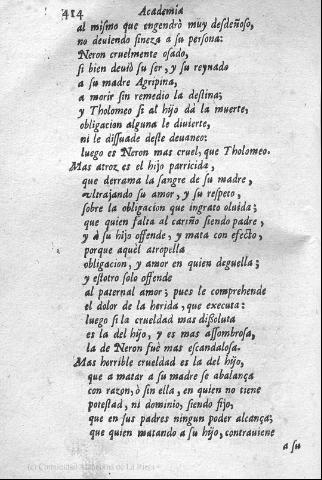 414 Academia
al mismo que engendrò muy desdeñoso,
no deuiendo fineza a su persona:
Neron cruelmente osado,
si bien deuiò su ser, y su reynado
a su madre Agripina,
a morir sin remedio la destina;
y Tholomeo si al hijo dà la muerte,
obligacion alguna le diuierte,
ni le dissuade deste deuaneo:
luego es Neron mas cruel, que Tholomeo.
Mas atroz es el hijo parricida,
que derrama la sangre de su madre,
vltrajando su amor, y su respeto,
sobre la obligacion que ingrato oluida;
que quien falta al cariño siendo padre,
y à su hijo offende, y mata con efecto,
porque aquel atropella
obligacion, y amor en quien deguella;
y estotro solo offende
al paternal amor; pues le comprehende
el dolor de la herida, que executa:
luego si la crueldad mas dissoluta
es la del hijo, y es mas assombrosa,
la de Neron fuè mas escandalosa.
Mas horrible crueldad es la del hijo,
que a matar a su madre se abalança
con razon, ò sin ella, en quien no tiene
potestad, ni dominio, siendo fijo,
que en sus padres ningun poder alcança;
que quien matando a su hijo, contrauiene
a su
(c) Comunidad Autónoma de La Rioja